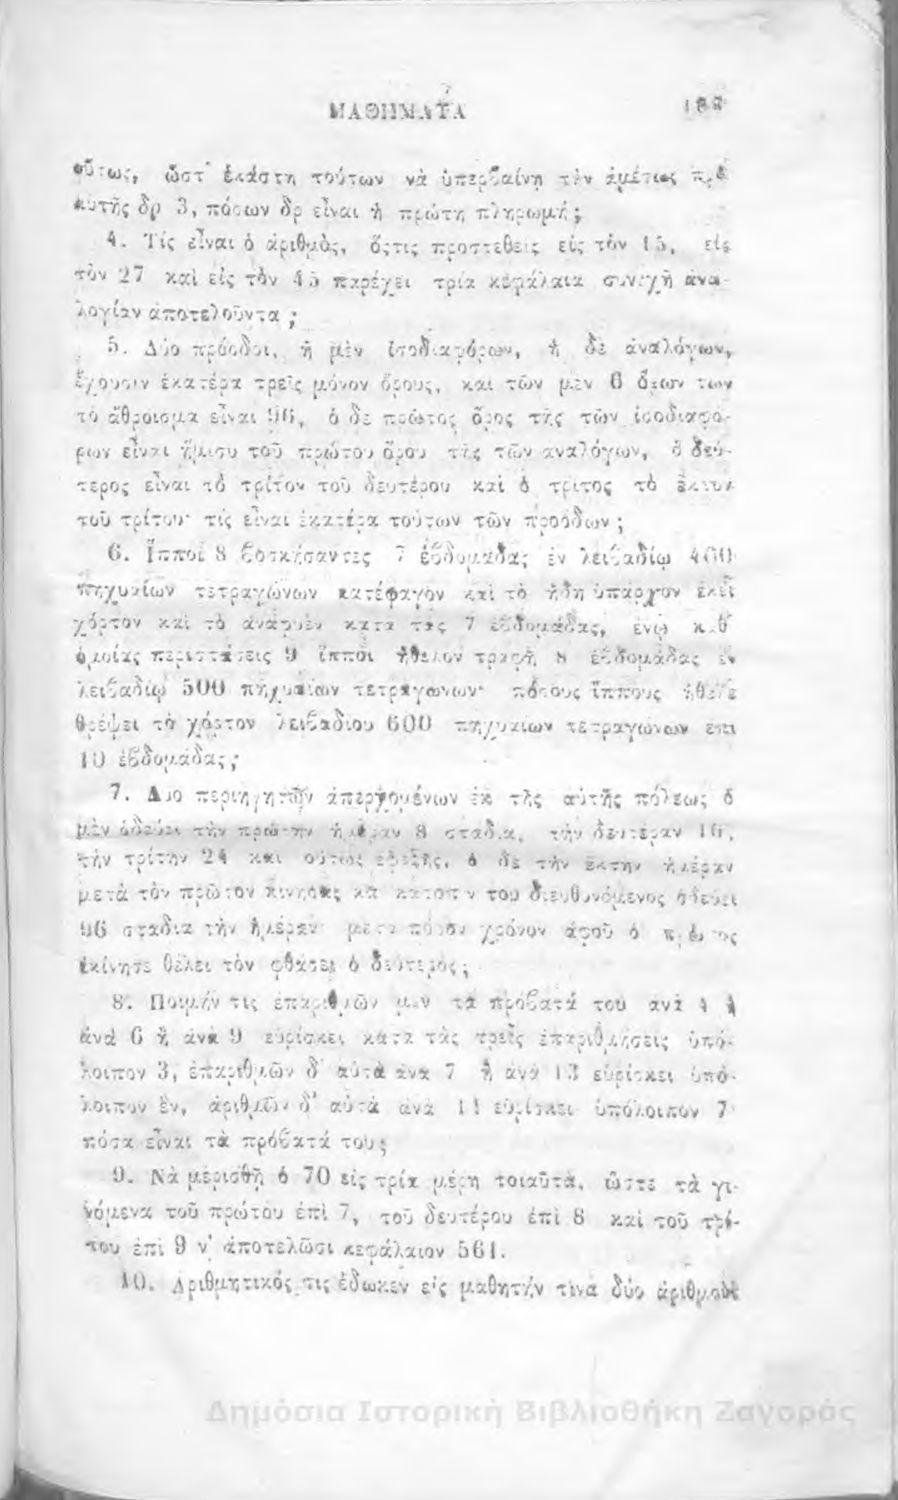 ΜΑΘΗΜΑΤΑ
οὕτως, ὥστ' ἑκάστη τούτων νὰ ὑπερβαίνῃ τὴν ἀμέσως πρὸ
αὐτῆς δρ 3, πόσων δρ εἶναι ἡ πρώτη πληρωμή;
4. Τίς εἶναι ὁ ἀριθμὸς, ὅςτις προστεθεὶς εἰς τὸν 15, εἰς
τὸν 27 καὶ εἰς τὸν 45 παρέχει τρία κεφάλαια συνεχῆ ἀνα-
λογίαν ἀποτελοῦντα;
5. Δύο πρόοδοι, ἡ μὲν ἰσοδιαφόρων, ἡ δὲ ἀναλόγων,
ἔχουσιν ἑκατέρα τρεῖς μόνον ὅρους, καὶ τῶν μὲν 6 ὅρων των
τὸ ἄθροισμα εἶναι 96, ὁ δὲ πρῶτος ὅρος τῆς τῶν ἰσοδιαφό-
ρων εἶναι ἥμισυ τοῦ πρώτου ὅρου τῆς τῶν ἀναλόγων, ὁ δεύ-
τερος εἶναι τὸ τρίτον τοῦ δευτέρου καὶ ὁ τρίτος τὸ ἕκτον
τοῦ τρίτου· τίς εἶναι ἑκατέρα τούτων τῶν προόδων;
6. Ἵπποι 8 βοσκήσαντες 7 ἑβδομάδας ἐν λειβαδίῳ 400
πηχυαίων τετραγώνων κατέφαγον καὶ τὸ ἤδη ὑπάρχον ἐκεῖ
χόρτον καὶ τὸ ἀναφυὲν κατὰ τὰς 7 ἑβδομάδας, ἐνῷ καθ'
ὁμοίας περιστάσεις 9 ἵπποι ἤθελον τραφῆ 8 ἑβδομάδας ἐν
λειβαδίῳ 500 πηχυαίων τετραγώνων· πόσους ἵππους ἤθελε
θρέψει τὸ χόρτον λειβαδίου 600 πηχυαίων τετραγώνων ἐπὶ
10 ἑβδομάδας;
7. Δύο περιηγητῶν ἀπερχομένων ἐκ τῆς αὐτῆς πόλεως ὁ
μὲν ὁδεύει τὴν πρώτην ἡμέραν 8 στάδια, τὴν δευτέραν 16,
τὴν τρίτην 24 καὶ οὕτως ἐφεξῆς, ὁ δὲ τὴν ἕκτην ἡμέραν
μετὰ τὸν πρῶτον κινήσας καὶ κατόπιν του διευθυνόμενος ὁδεύει
96 στάδια τὴν ἡμέραν· μετὰ πόσον χρόνον ἀφοῦ ὁ πρῶτος
ἐκίνησε θέλει τὸν φθάσει ὁ δεύτερος;
8. Ποιμήν τις ἐπαριθμῶν μὲν τὰ πρόβατά του ἀνὰ 4 ἢ
ἀνὰ 6 ἢ ἀνὰ 9 εὑρίσκει κατὰ τὰς τρεῖς ἐπαριθμήσεις ὑπό-
λοιπον 3, ἐπαριθμῶν δ' αὐτὰ ἀνὰ 7 ἢ ἀνὰ 13 εὑρίσκει ὑπό-
λοιπον ἕν, ἀριθμῶν δ' αὐτὰ ἀνὰ 11 εὑρίσκει ὑπόλοιπον 7·
πόσα εἶναι τὰ πρόβατά του;
9. Νὰ μερισθῇ ὁ 70 εἰς τρία μέρη τοιαῦτα, ὥστε τὰ γι-
νόμενα τοῦ πρώτου ἐπὶ 7, τοῦ δευτέρου ἐπὶ 8 καὶ τοῦ τρί-
του ἐπὶ 9 ν' ἀποτελῶσι κεφάλαιον 561.
10. Ἀριθμητικός τις ἔδωκεν εἰς μαθητήν τινα δύο ἀριθμοὺς
Δημόσια Ιστορική Βιβλιοθήκη Ζαγοράς